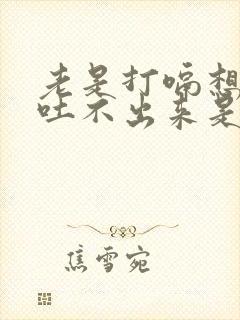 老是打嗝想
吐不出来是
焦雪宛